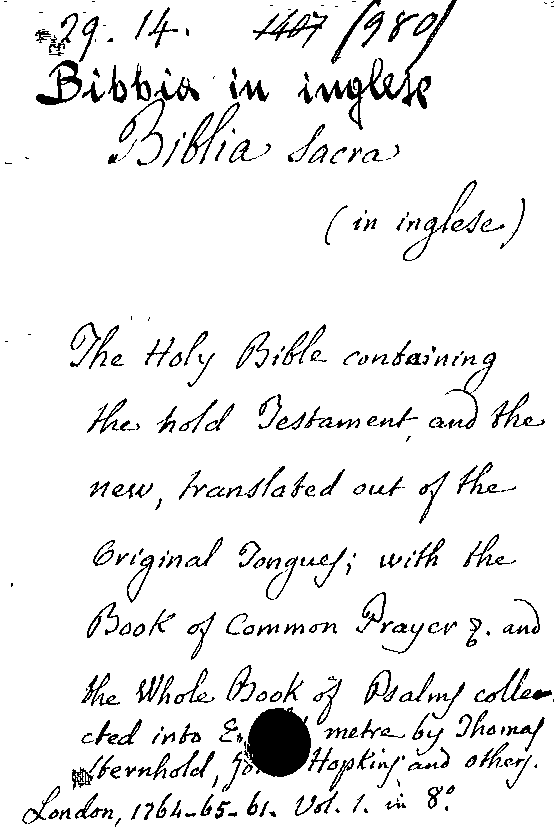 29. 14. 1407 1980
Bibbia in inglese
Biblia Sacra
(in inglese)
The Holy Bible containing
the hold Testament, and the
new, translated out of the
Original Tongues; with the
Book of Common Prayer &. and
the Whole Book of Psalms colle-
cted into metre by Thomas
Sternhold, Hopkins and others.
London, 1764-65-61. Vol. 1. in 8°